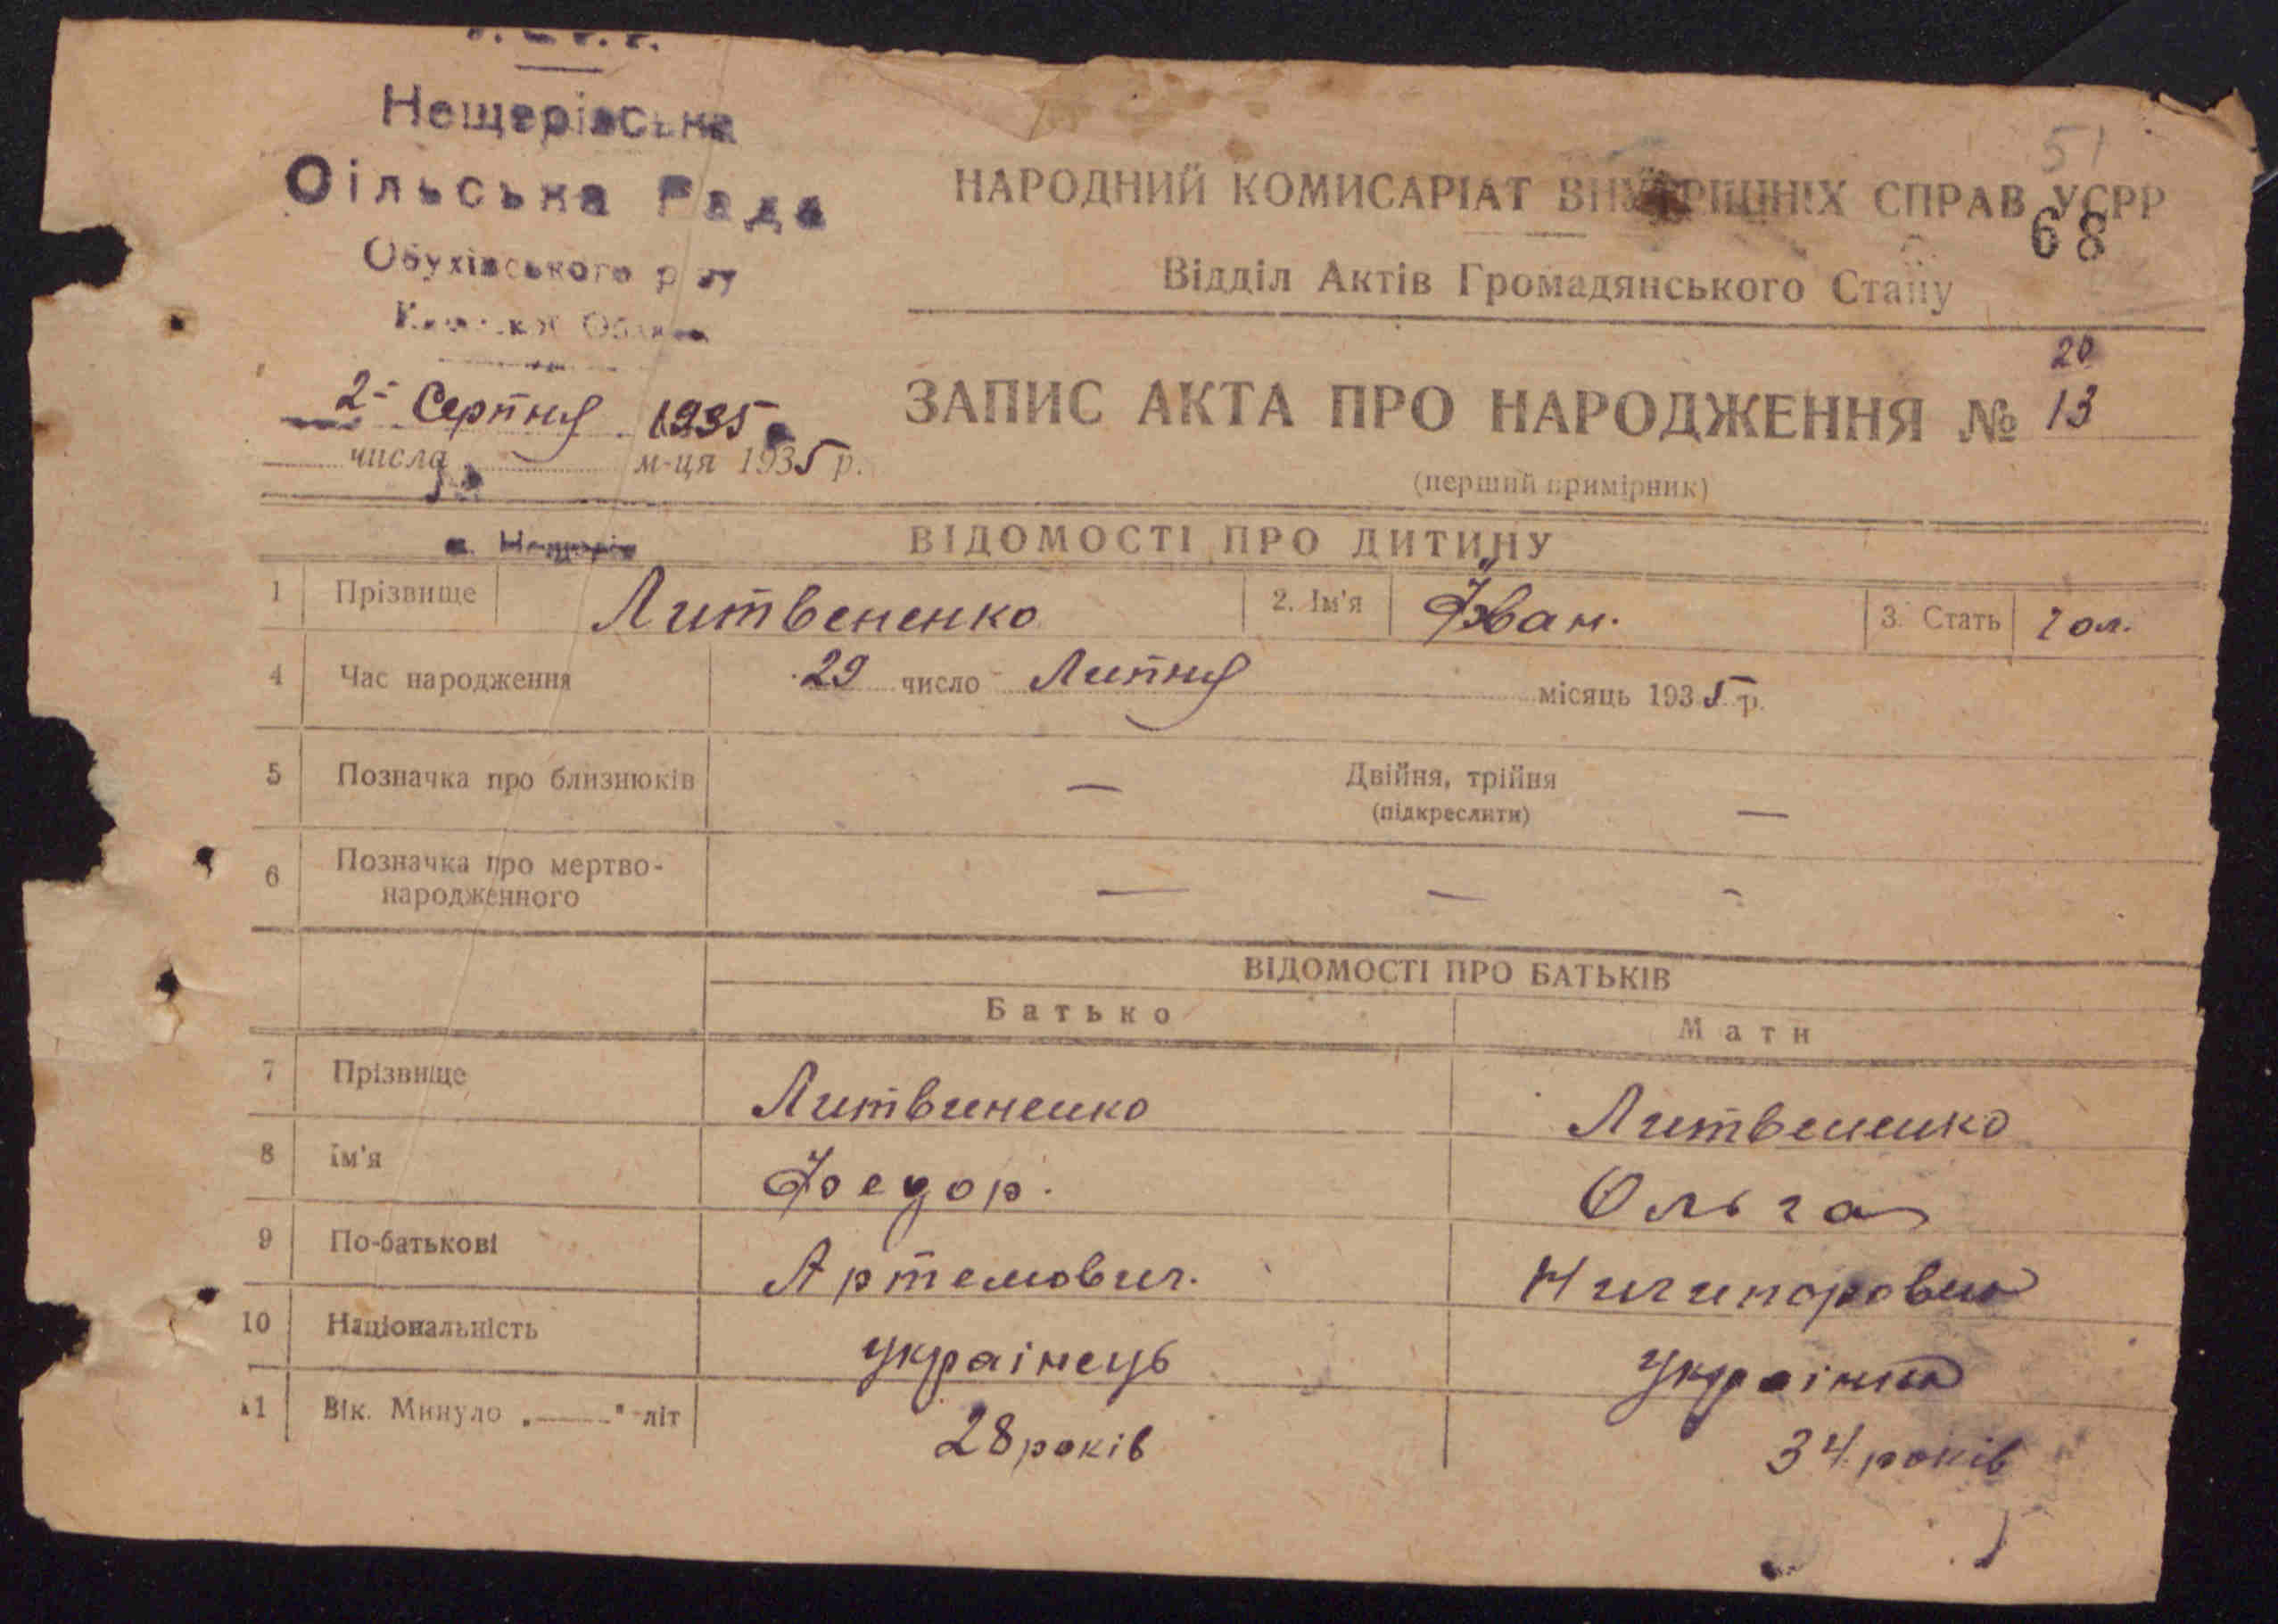 Нещерівська
Сільська Рада
Обухівського р-ну
2- Серпня 1935
числа м-ця 1935 р.
51
НАРОДНИЙ КОМИСАРІАТ ВНУТРІШНІХ СПРАВ УСРР
68
Відділ Актів Громадянського Стану
20
ЗАПИС АКТА ПРО НАРОДЖЕННЯ № 13
(перший примірник)
ВІДОМОСТІ ПРО ДИТИНУ
1 Прізвище Литвененко 2. Ім'я Іван. 3. Стать Чол.
4 Час народження 29 число Липня місяць 1935 р.
5 Позначка про близнюків — Двійня, трійня —
(підкреслити)
6 Позначка про мертво-
народженного — — -
ВІДОМОСТІ ПРО БАТЬКІВ
Батько Мати
7 Прізвище Литвиненко Литвененко
8 Ім'я Федор. Ольга
9 По-батькові Артемович. Ничипоровна
10 Національність українець українка
11 Вік. Минуло „——" літ 28 років 34 років